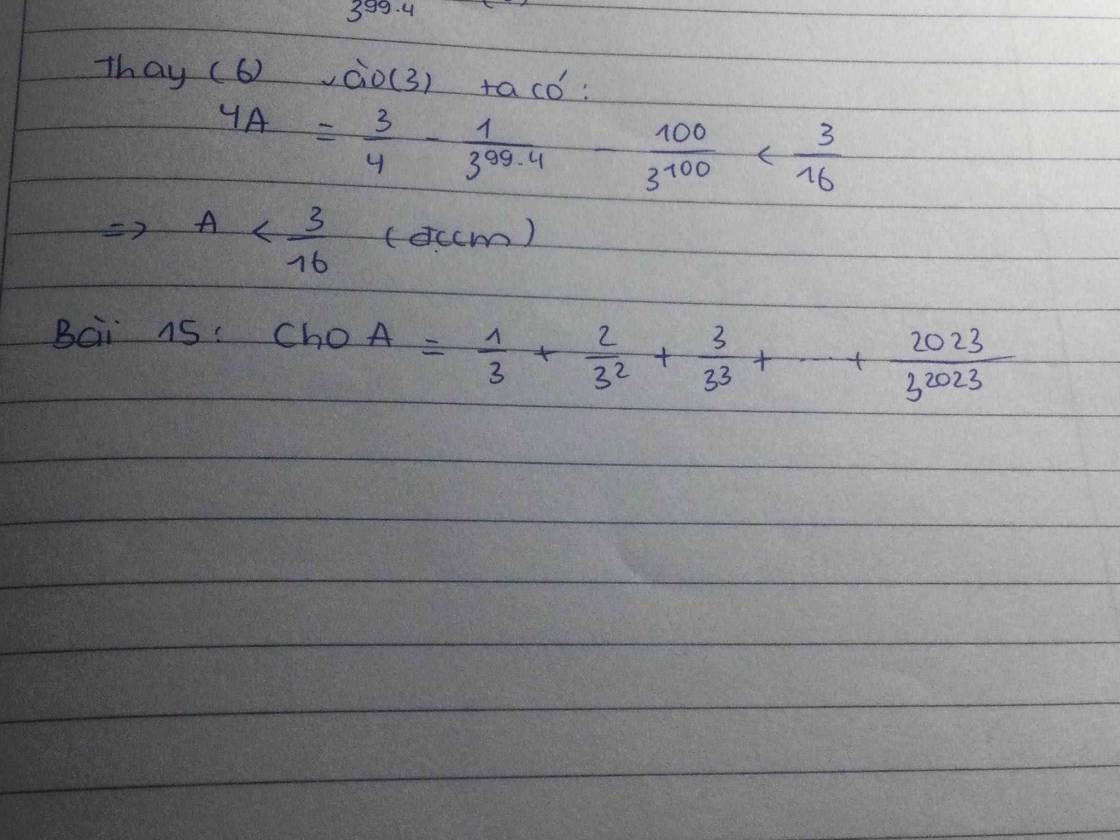 3^99.4
Thay (6) vào(3) ta có:
4A = 3/4 - 1/3^99.4 - 100/3^100 < 3/16
=> A < 3/16 (đccm)
Bài 15: Cho A = 1/3 + 2/3^2 + 3/3^3 + ... + 2023/3^2023